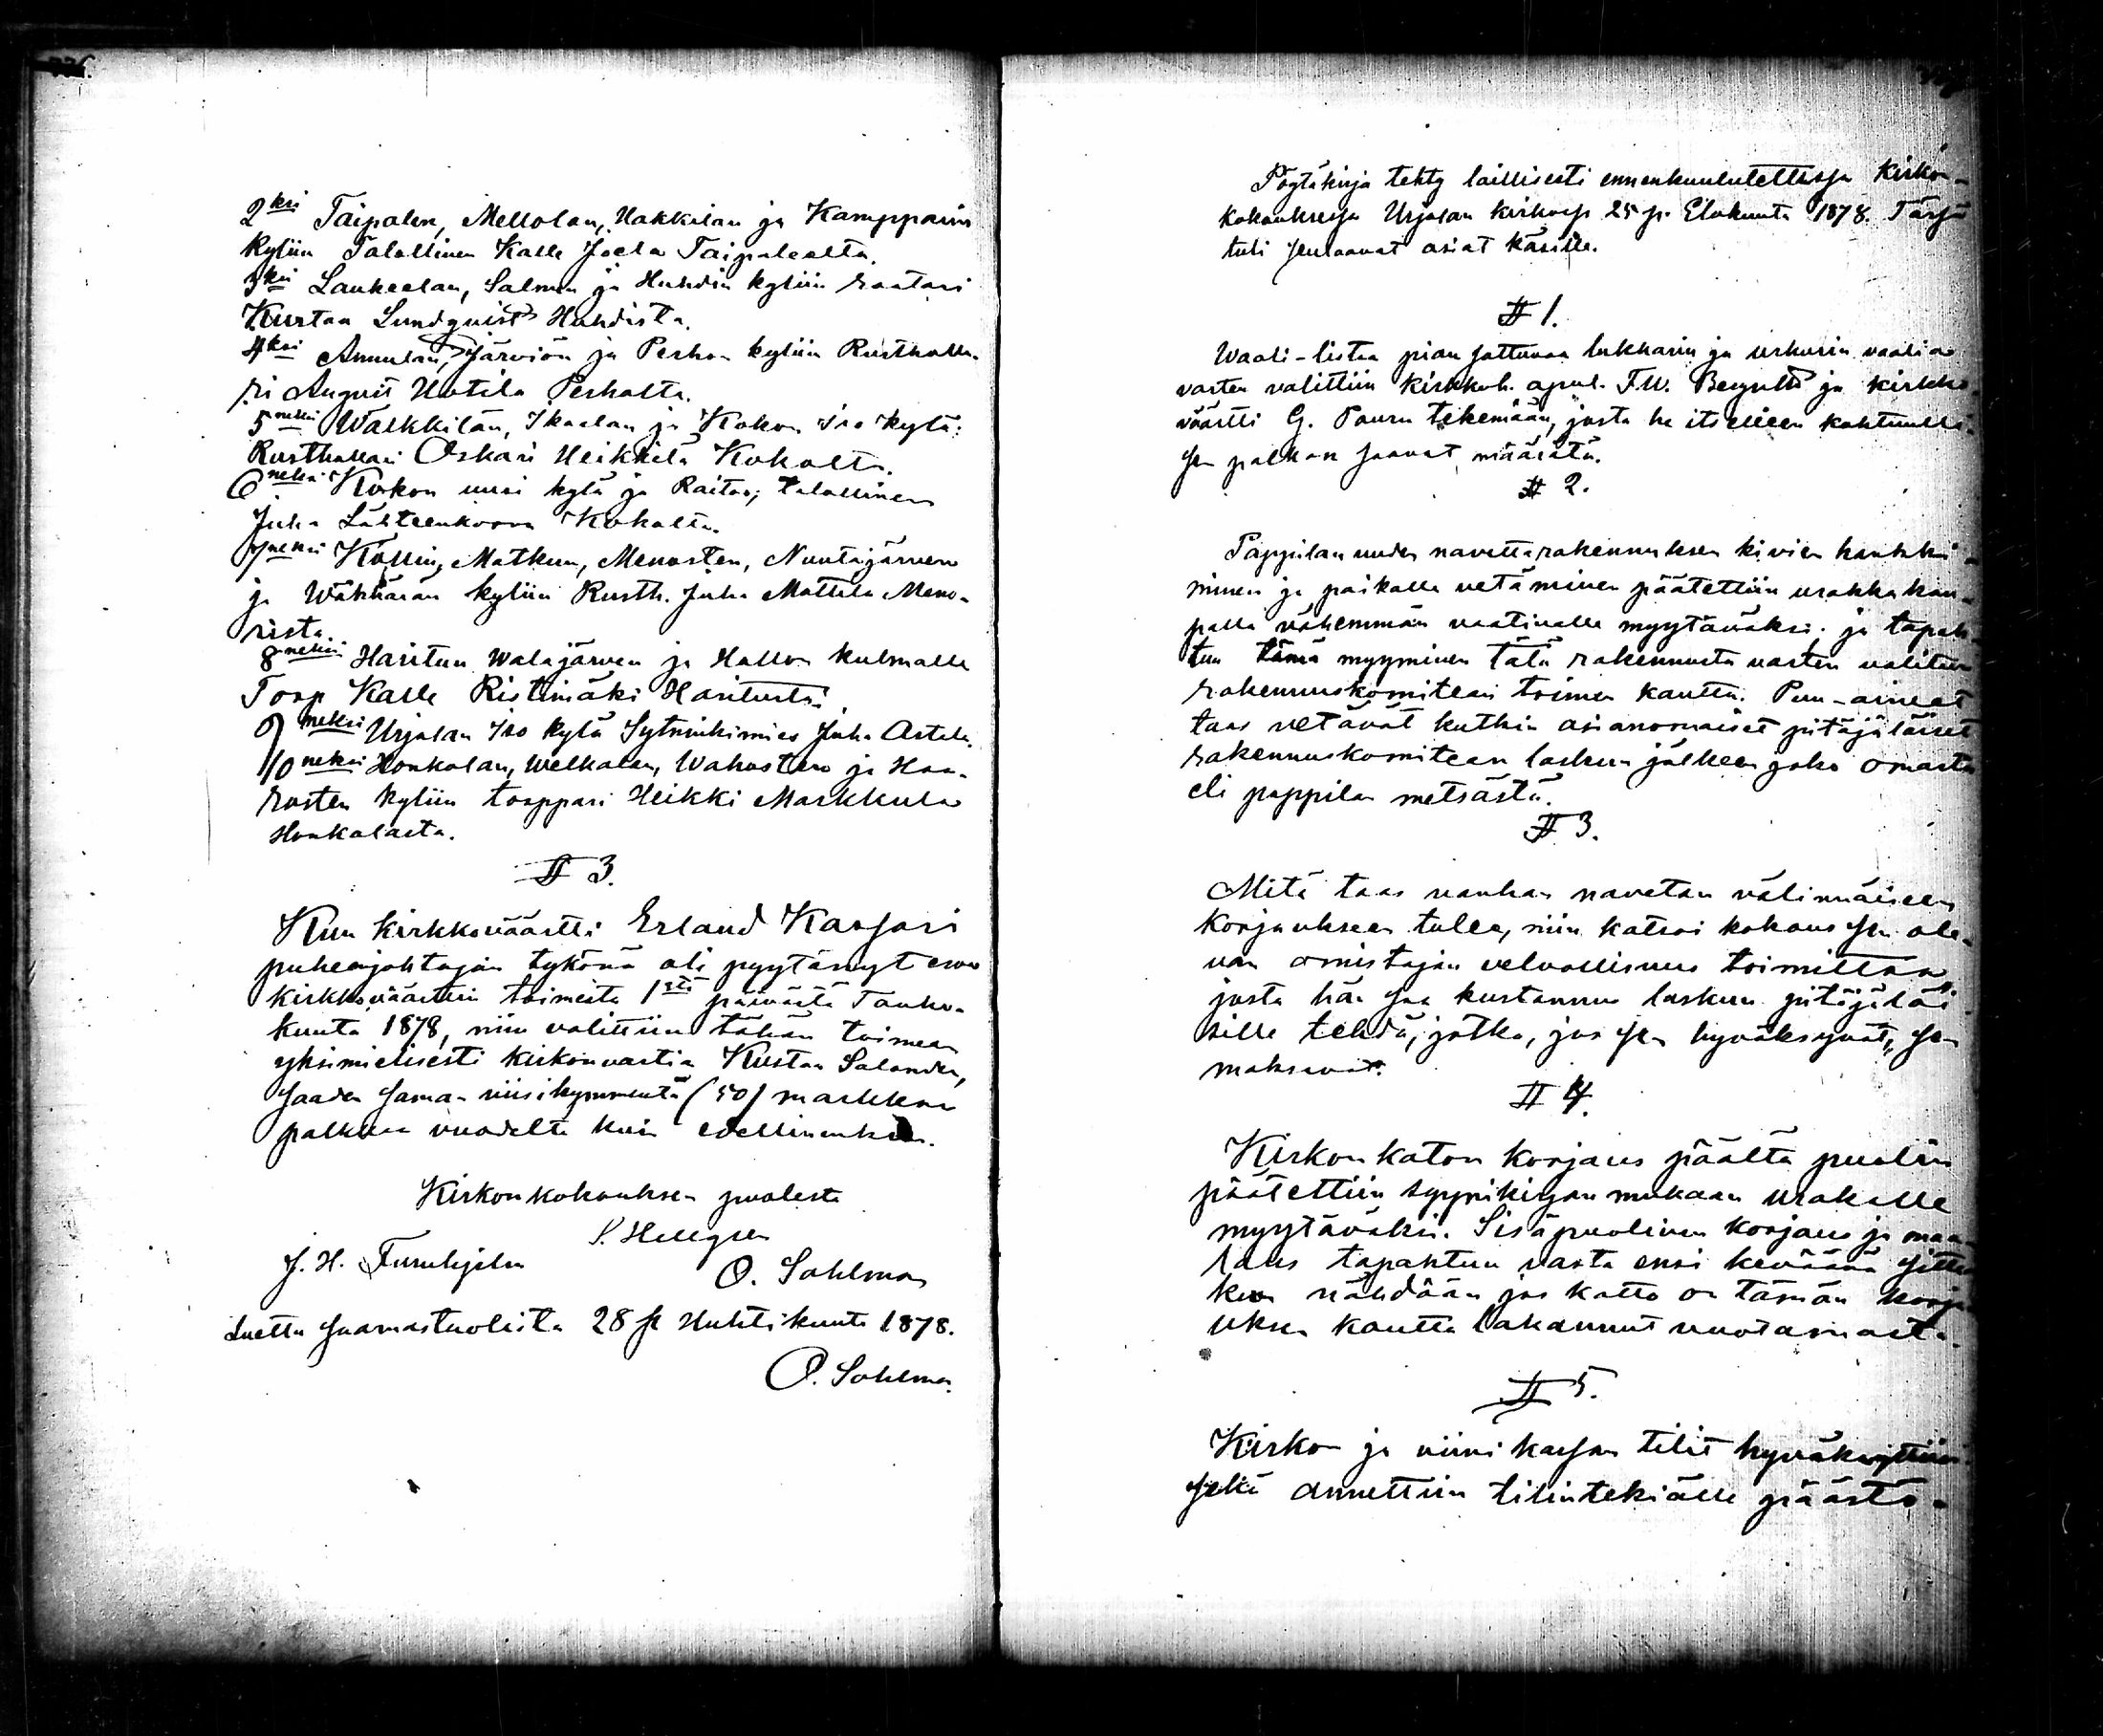 2ksi Taipalen, Mellolan, Hakkilan ja Kampparin
kyliin Talollinen Kalle Joela Taipaleelta.
3ksi Laukeelan, Salmen ja Huhdin kyliin raatari
Kustaa Lundqvist Huhdista.
4ksi Annulan, Järviön ja Peshon kyliin Rusthalla-
ri August Uotila Pesholta.
5neksi Walkkilan, Ikaalan ja Kokon iso kylä:
Rusthallari Oskari Heikkilä Kokolta.
6neksi Kokon uusi kylä ja Raitoo; talollinen
Juha Lähteenkorva Kokolta.
7neksi Kollin, Matkun, Menosten, Nuutajärven
ja Wähkärän kyliin Rusth. Juha Mattila Meno-
sista.
8neksi Haritun Walajärven ja Hallon kulmalle
Torp Kalle Ristimäki Haritusta.
9neksi Urjalan Iso kylä Sytninkimies Juha Astala.
10neksi Honkolan, Welkalan, Wahosten ja Haa-
rosten kyliin torppari Heikki Markkula
Honkolasta.
§ 3.
Kun kirkkoväärtti Erland Kassari
puheenjohtajan tykönä oli pyytänyt eron
kirkkoväärtin toimesta 1stä päivästä Touko-
kuuta 1878, niin valittiin tähän toimeen
yksimielisesti kirkonvartia Kustaa Salander,
saaden saman viisikymmentä (50) markkaa
palkkaa vuodelta kuin edellinenkin.
Kirkonkokouksen puolesta
S. Hellgren
J. H. Furuhjelm
O. Sohlman
Luettu saarnastuolista 28 p. Huhtikuuta 1878.
O. Sohlman.
Pöytäkirja tehty laillisesti ennenkuulutettussa kirkon-
kokouksessa Urjalan kirkossa 25 p. Elokuuta 1878. Tässä
tuli seuraavat asiat käsille.
§ 1.
Waali-listaa pian sattuvaa lukkarin ja urkurin vaalia
varten valittiin kirkkoh. apul. F.W. Bergroth ja kirkko-
väärtti G. Pouru tekemään, josta he itselleen kohtuulli-
sen palkan saavat määrätä.
§ 2.
Pappilan uuden navettarakennuksen kivien hankki-
minen ja paikalle vetäminen päätettiin urakka kau-
palla vähemmän vaativalle myytäväksi; ja tapah-
tuu tämä myyminen tätä rakennusta varten valitun
rakennuskomitean toimen kautta. Puu-aineet
taas vetävät kutkin asianomaiset pitäjäläiset
rakennuskomitean laskun jälkeen joko omasta
eli pappilan metsästä.
§ 3.
Mitä taas vanhan navetan välinnäiseen
korjaukseen tulee, niin katsoi kokous sen ole-
van omistajan velvollisuus toimittaa
josta hän saa kustannus laskun pitäjäläi-
sille tehdä, jotka, jos sen hyväksyvät, sen
maksavat.
§ 4.
Kirkon katon korjaus päältä puolin
päätettiin syynikirjan mukaan urakalle
myytäväksi. Sisäpuolinen korjaus ja maa-
laus tapahtuu vasta ensi keväänä sitte
kun nähdään jos katto on tämän korja-
uksen kautta lakannut vuotamasta.
§ 5.
Kirkon ja viini kassan tilit hyväksyttiin
sekä annettiin tilintekiälle päästö-